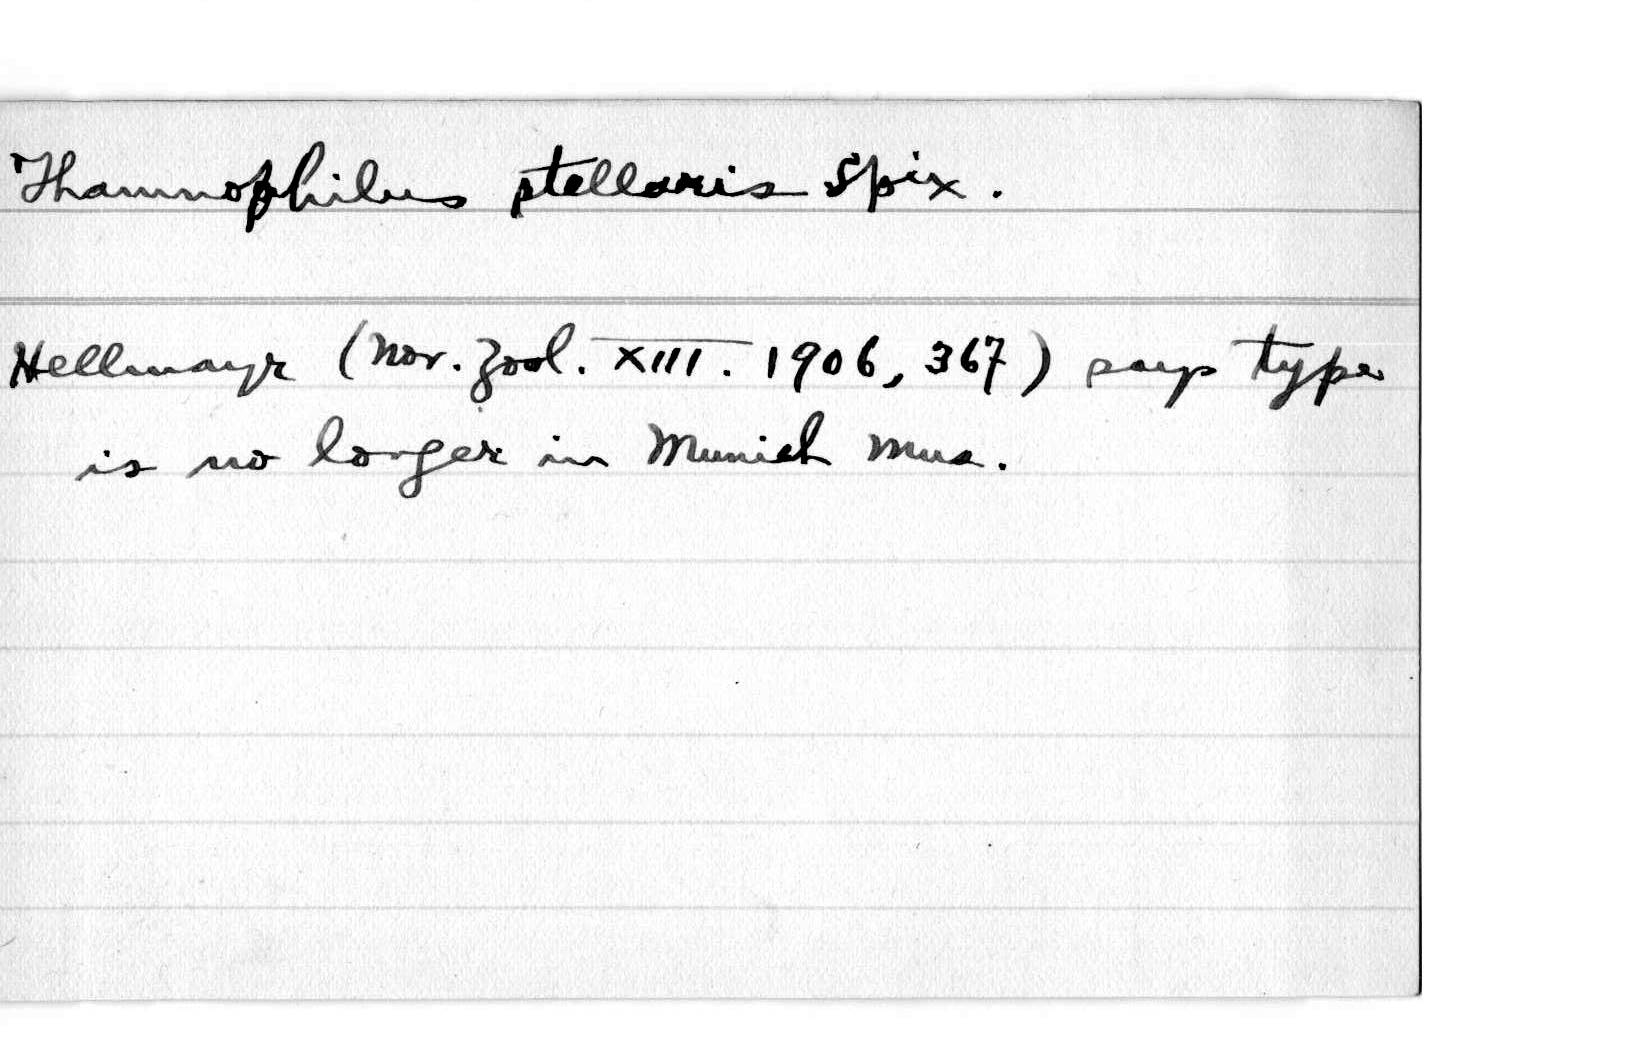 Thamnophilus stellaris Spix.
Hellmayr (Nov. Zool. XIII. 1906, 367) says type
is no longer in Munich Mus.